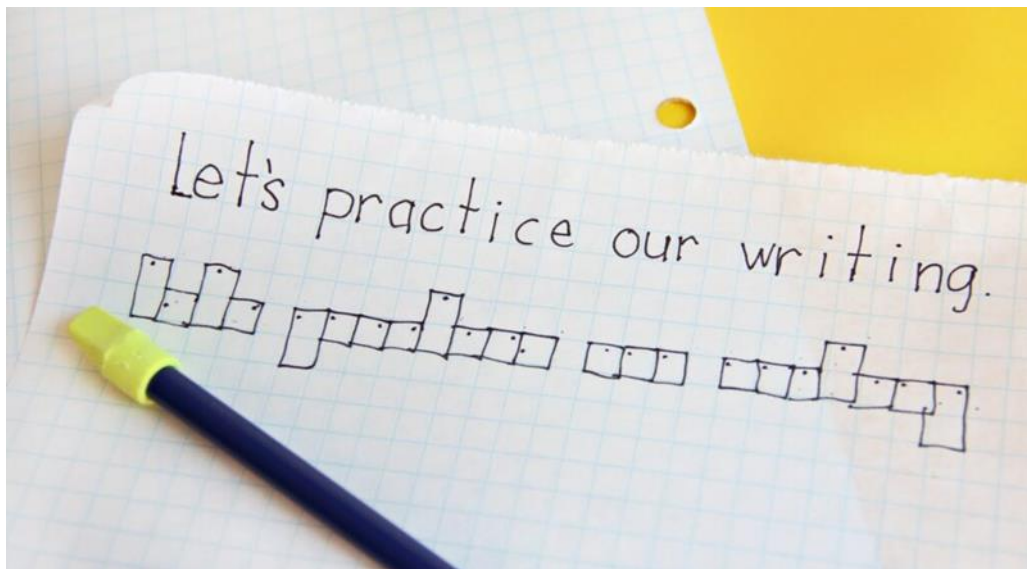 Let's practice our writing.